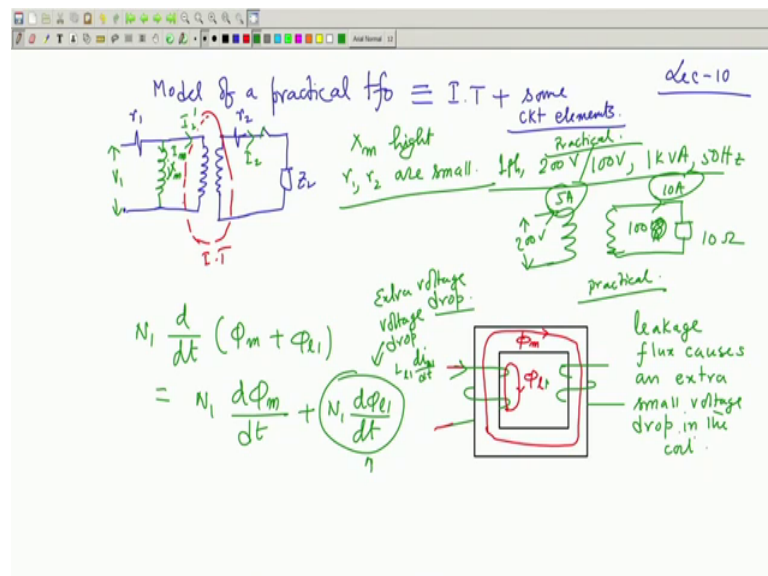 Arial Normal 12
Model of a practical tfo ≡ I.T + some
ckt elements.
Lec-10
r1
I2'
r2
Im
Xm
I2
V1
Z2
I.T
Xm hight
r1, r2 are small.
Practical
1ph, 200V/100V, 1KVA, 50Hz
5A
10A
200V
100
10Ω
practical.
Extra voltage
drop.
voltage
drop
N1 d/dt (Φm + Φl1)
= N1 dΦm/dt + N1 dΦl1/dt
Φm
Φl1
leakage
flux causes
an extra
small voltage
drop in the
coil.